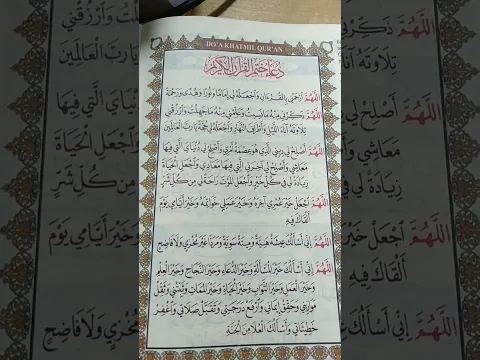 DO'A KHATMIL QUR'AN
دُعَاءُ خَتْمِ الْقُرْآنِ الْكَرِيمِ
اَللّٰهُمَّ ارْحَمْنِي بِالْقُرْءَانِ وَاجْعَلْهُ لِي إِمَامًا وَنُوْرًا وَهُدًى وَرَحْمَةً
اَللّٰهُمَّ ذَكِّرْنِي مِنْهُ مَانَسِيْتُ وَعَلِّمْنِي مِنْهُ مَاجَهِلْتُ وَارْزُقْنِي
تِلَاوَتَهُ آنَاءَ اللَّيْلِ وَأَطْرَافَ النَّهَارِ وَاجْعَلْهُ لِي حُجَّةً يَارَبَّ الْعَالَمِيْنَ
اَللّٰهُمَّ أَصْلِحْ لِي دِيْنِي الَّذِي هُوَ عِصْمَةُ أَمْرِي وَأَصْلِحْ لِي دُنْيَايَ الَّتِي فِيْهَا
مَعَاشِي وَأَصْلِحْ لِي آخِرَتِي الَّتِي فِيْهَا مَعَادِي وَاجْعَلِ الْحَيَاةَ
زِيَادَةً لِي فِي كُلِّ خَيْرٍ وَاجْعَلِ الْمَوْتَ رَاحَةً لِي مِنْ كُلِّ شَرٍّ
اَللّٰهُمَّ اجْعَلْ خَيْرَ عُمْرِي آخِرَهُ وَخَيْرَ عَمَلِي خَوَاتِمَهُ وَخَيْرَ أَيَّامِي يَوْمَ
أَلْقَاكَ فِيْهِ
اَللّٰهُمَّ إِنِّي أَسْأَلُكَ عِيْشَةً هَنِيَّةً وَمِيْتَةً سَوِيَّةً وَمَرَدًّا غَيْرَ مُخْزِي وَلَا فَاضِحٍ
اَللّٰهُمَّ إِنِّي أَسْأَلُكَ خَيْرَ الْمَسْأَلَةِ وَخَيْرَ الدُّعَاءِ وَخَيْرَ النَّجَاحِ وَخَيْرَ الْعِلْمِ
وَخَيْرَ الْعَمَلِ وَخَيْرَ الثَّوَابِ وَخَيْرَ الْحَيَاةِ وَخَيْرَ الْمَمَاتِ وَثَبِّتْنِي وَثَقِّلْ
مَوَازِيْنِي وَحَقِّقْ إِيْمَانِي وَارْفَعْ دَرَجَتِي وَتَقَبَّلْ صَلَاتِي وَاغْفِرْ
خَطِيْئَاتِي وَأَسْأَلُكَ الْعُلَا مِنَ الْجَنَّةِ